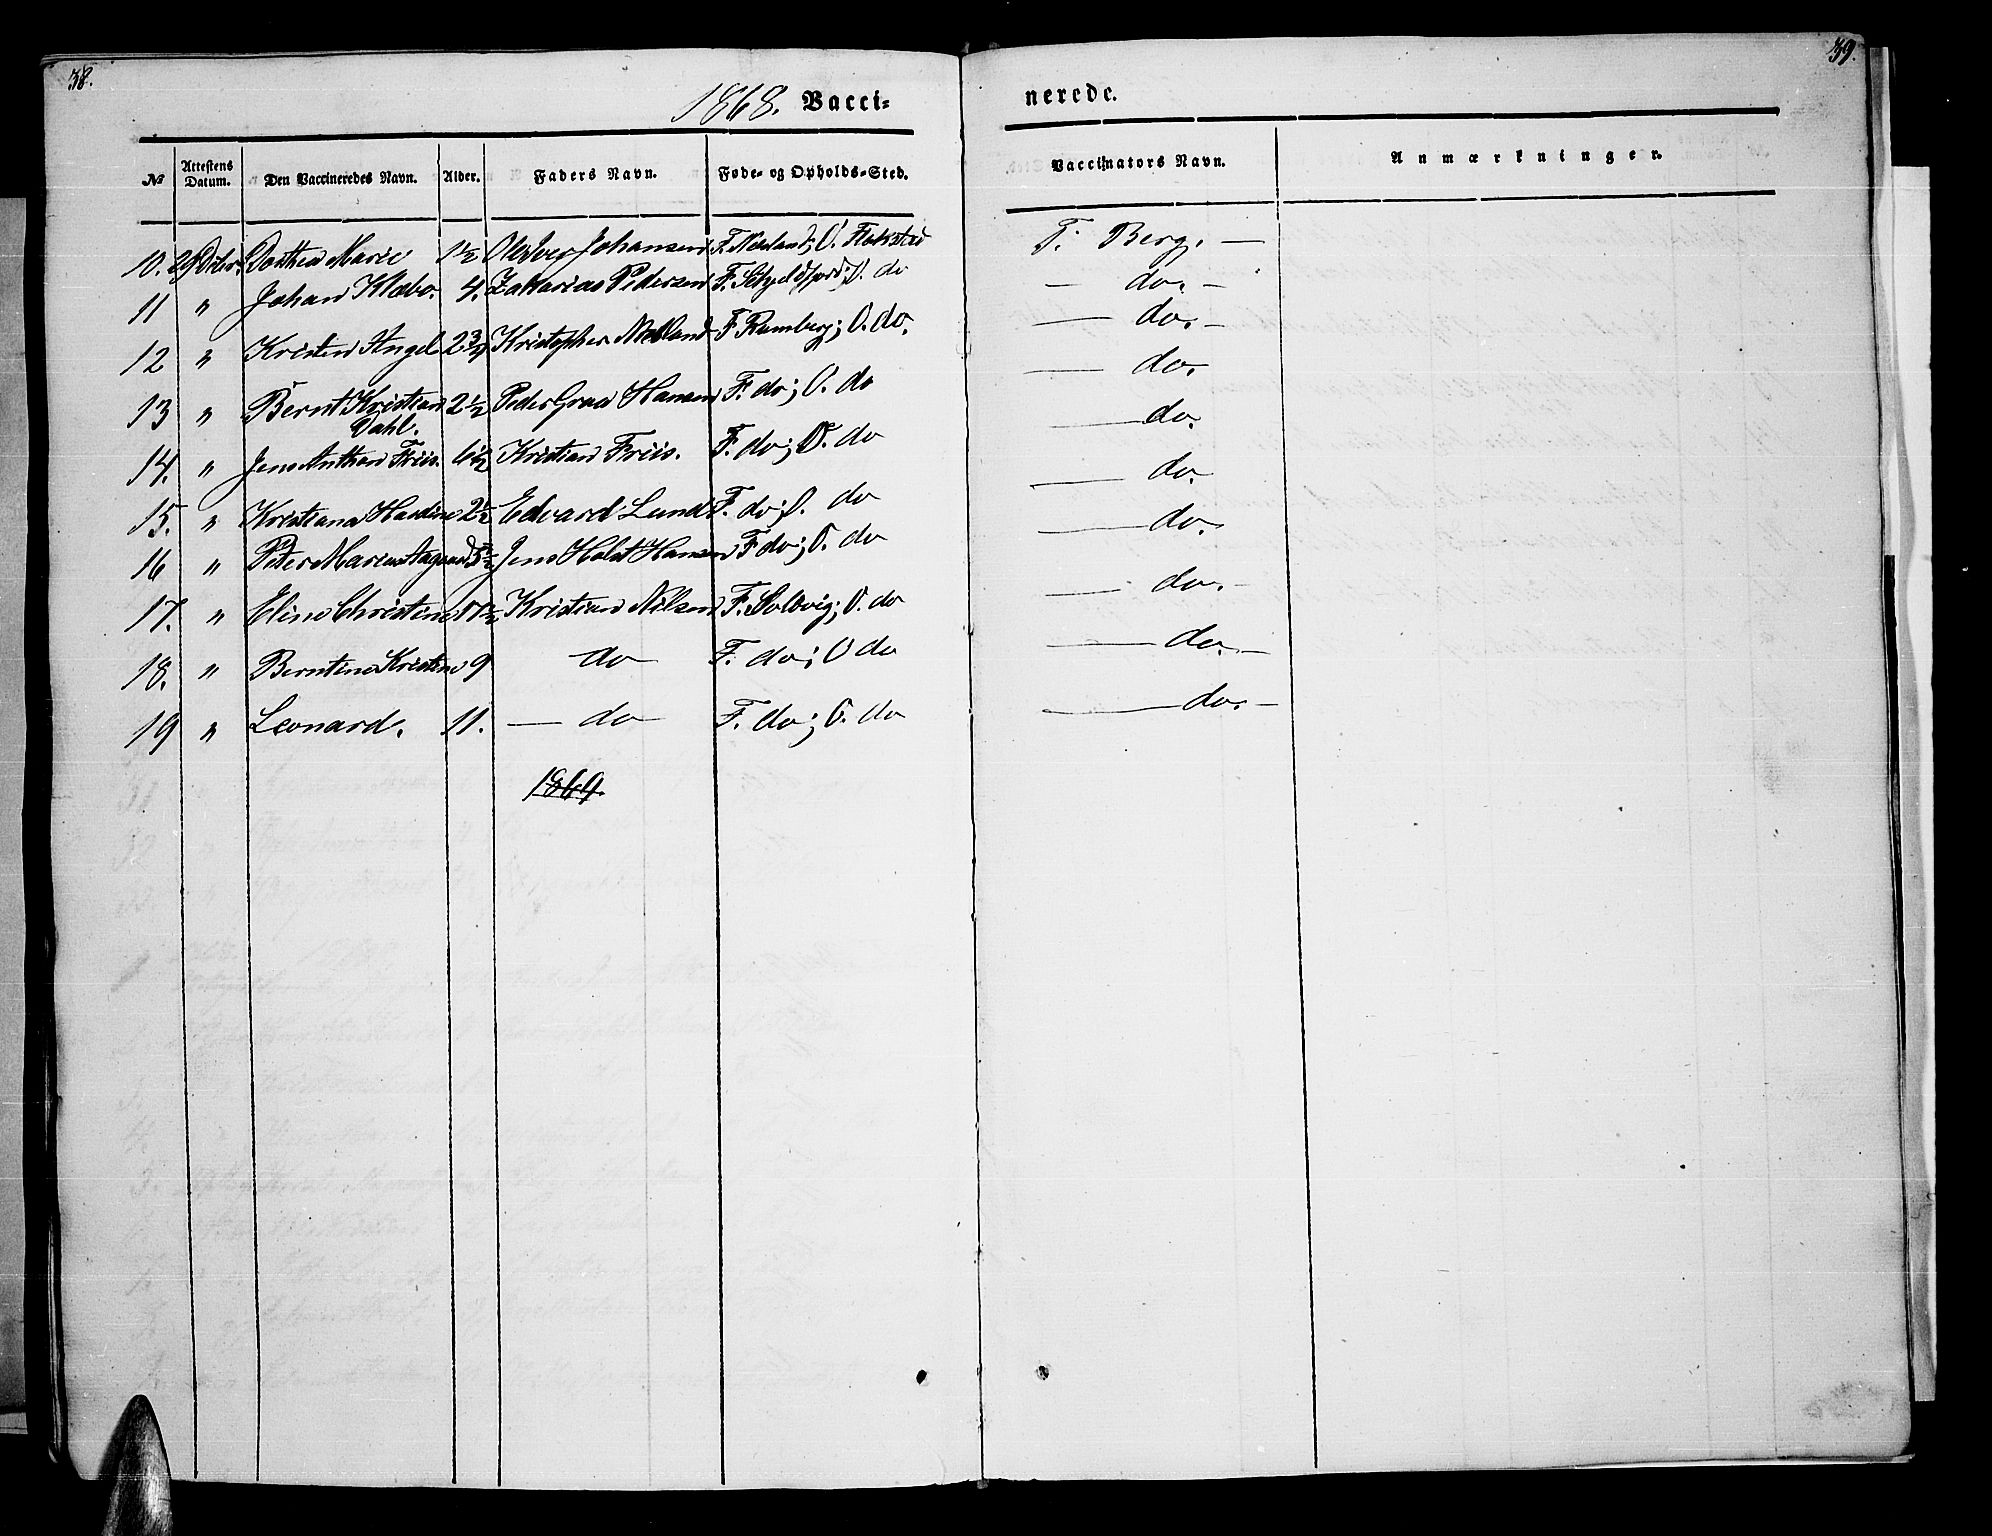 38.
39.
1868. Vacci=
nerede.
№ Attestens Datum. Den Vaccineredes Navn. Alder. Faders Navn. Føde- og Opholds-Sted. Vaccinators Navn. Anmærkninger.
10. 29 Dorthea Marie 1½ Ole Iver Johansen F. Nesland; O. Flakstad T. Berg. —
11 " Johan Klæbo. 4. Zakarias Pedersen F. Skjeldfjord; O. do — do. —
12 " Kristen Angel 2¾ Kristopher Melland F. Ramberg; O. do. — do. —
13 " Bernt Kristian Dahl. 2½ Peder Graa Hansen F. do; O. do — do.
14. " Jens Anthon Friis. 6½ Kristian Friis. F. do; O. do — do.
15. " Kristiana Hardine 2½ Edvard Lund F. do; O. do — do.
16 " Peter Marius Aagaard 5½ Jens Holst Hansen F do; O. do — do.
17. " Eline Christine 11½ Kristian Nilsen F. Solbvig; O. do — do. —
18. " Berntine Kristine 9 do F. do; O do — do. —
19 " Leonard. 11. — do F. do; O. do — do. —
1869.